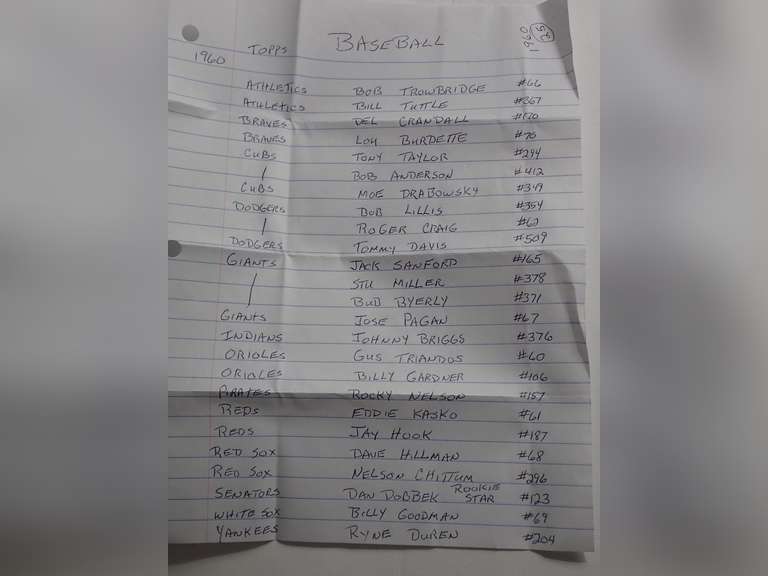 1960 TOPPS BASEBALL 1960
ATHLETICS BOB TROWBRIDGE #66
ATHLETICS BILL TUTTLE #367
BRAVES DEL CRANDALL #170
BRAVES LOU BURDETTE #70
CUBS TONY TAYLOR #294
BOB ANDERSON #412
CUBS MOE DRABOWSKY #349
DODGERS BOB LILLIS #354
ROGER CRAIG #62
DODGERS TOMMY DAVIS #509
GIANTS JACK SANFORD #165
STU MILLER #378
BUD BYERLY #371
GIANTS JOSE PAGAN #67
INDIANS JOHNNY BRIGGS #376
ORIOLES GUS TRIANDOS #60
ORIOLES BILLY GARDNER #106
PIRATES ROCKY NELSON #157
REDS EDDIE KASKO #61
REDS JAY HOOK #187
RED SOX DAVE HILLMAN #68
RED SOX NELSON CHITTUM #296
SENATORS DAN DOBBEK ROOKIE STAR #123
WHITE SOX BILLY GOODMAN #69
YANKEES RYNE DUREN #204